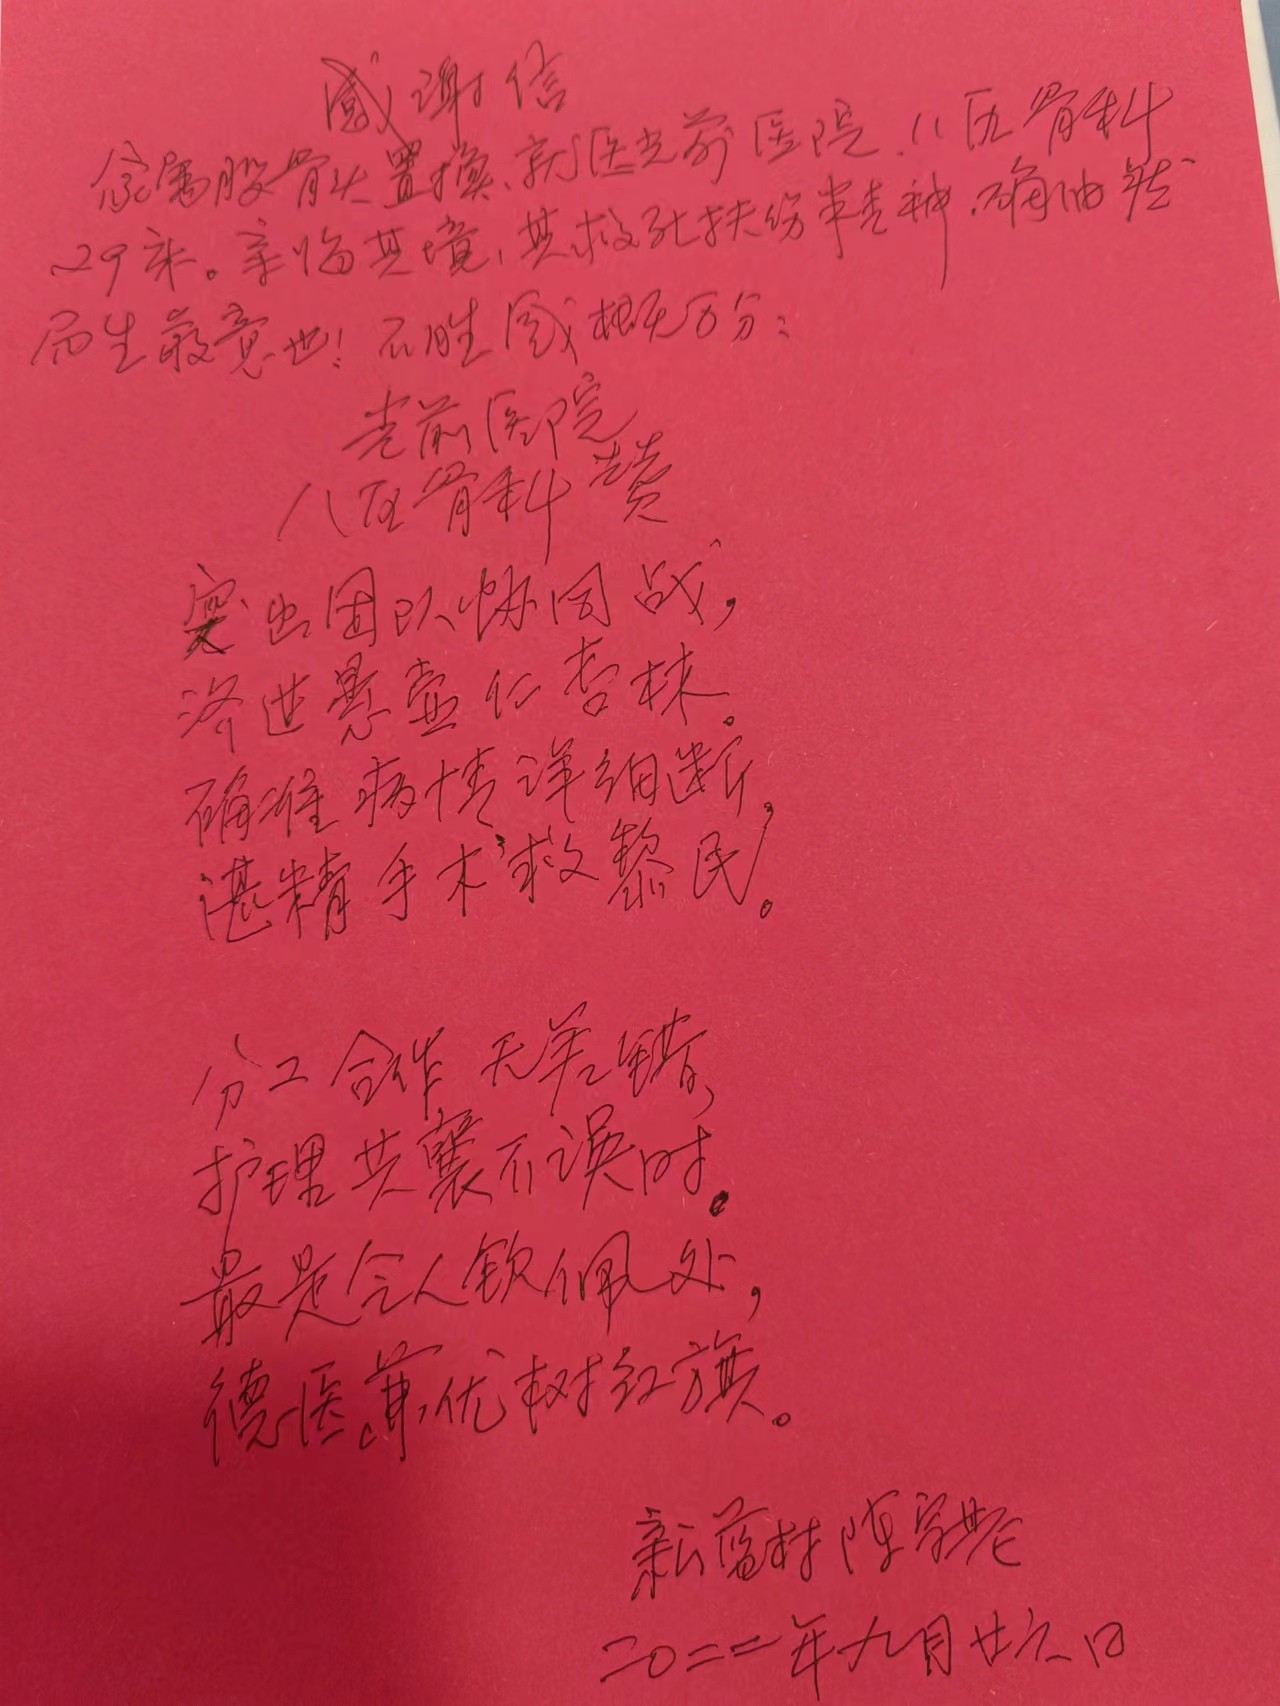 感谢信
家属股骨头置换、就医光前医院、八区骨科
29床。亲临其境、其救死扶伤半精神、确油然
而生敬意也！不胜感概万分：
光前医院
八区骨科赞
突出团队协同战，
济世悬壶仁杏林。
确准病情详细断，
湛精手术救黎民。
分工合作无差错，
护理共襄不误时。
最是令人钦佩处，
德医兼优树红旗。
新蓝村陈
二〇二二年九月廿六日